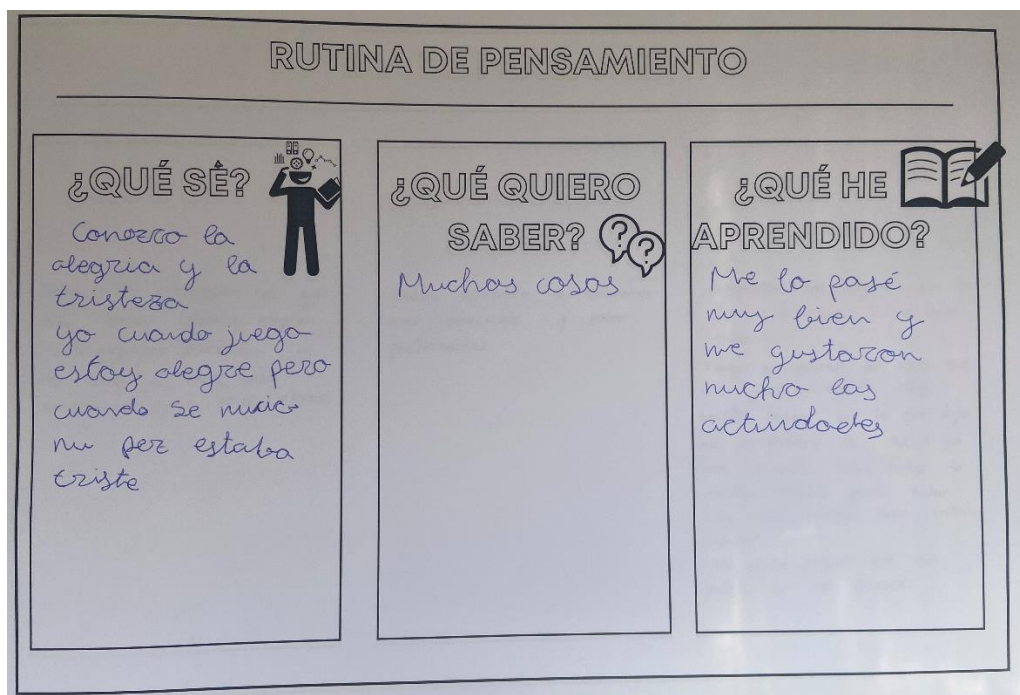 RUTINA DE PENSAMIENTO
¿QUÉ SÉ?
Conozco la
alegria y la
tristeza
yo cuando juego
estoy alegre pero
cuando se murio
mi pez estaba
triste
¿QUÉ QUIERO
SABER?
Muchas cosas
¿QUÉ HE
APRENDIDO?
Me lo pasé
muy bien y
me gustaron
mucho las
actividades